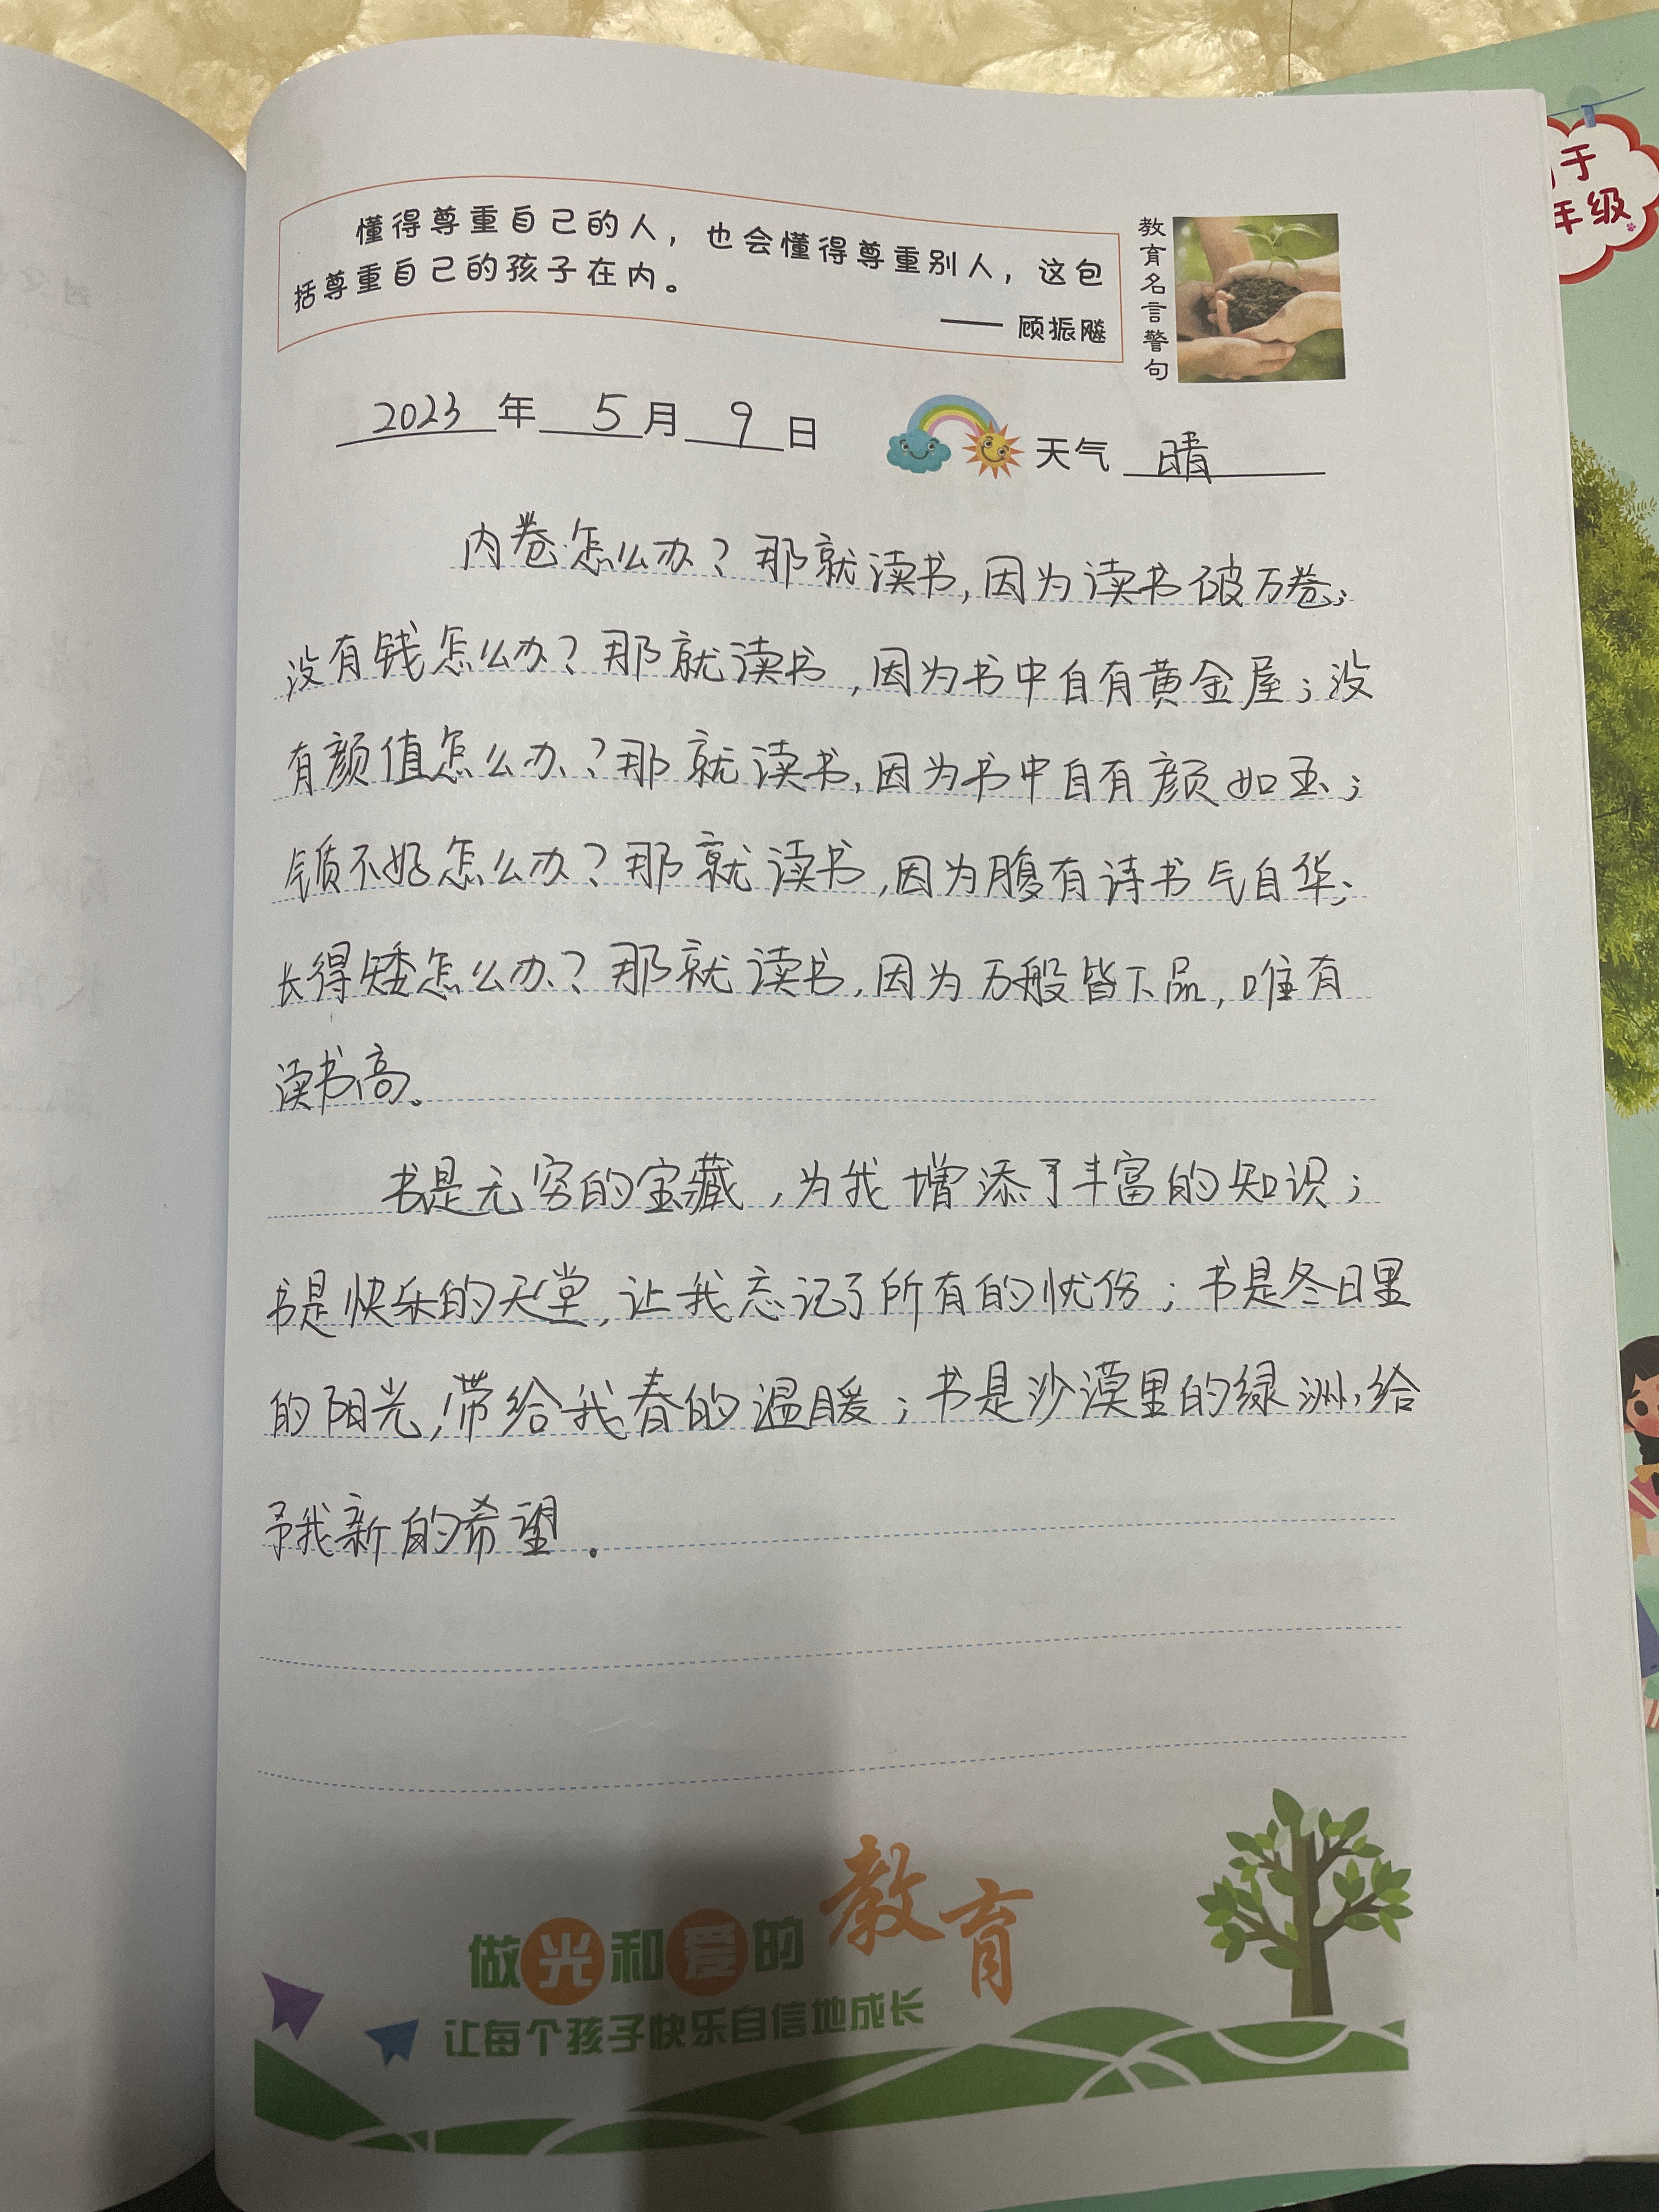 懂得尊重自己的人，也会懂得尊重别人，这包
括尊重自己的孩子在内。
—— 顾振飚
教育名言警句
2023年5月9日
天气 晴
内卷怎么办？那就读书，因为读书破万卷；
没有钱怎么办？那就读书，因为书中自有黄金屋；没
有颜值怎么办？那就读书，因为书中自有颜如玉；
气质不好怎么办？那就读书，因为腹有诗书气自华；
长得矮怎么办？那就读书，因为万般皆下品，唯有
读书高。
书是无穷的宝藏，为我增添了丰富的知识；
书是快乐的天堂，让我忘记了所有的忧伤；书是冬日里
的阳光，带给我春的温暖；书是沙漠里的绿洲，给
予我新的希望．
做光和爱的教育
让每个孩子快乐自信地成长
于
年级